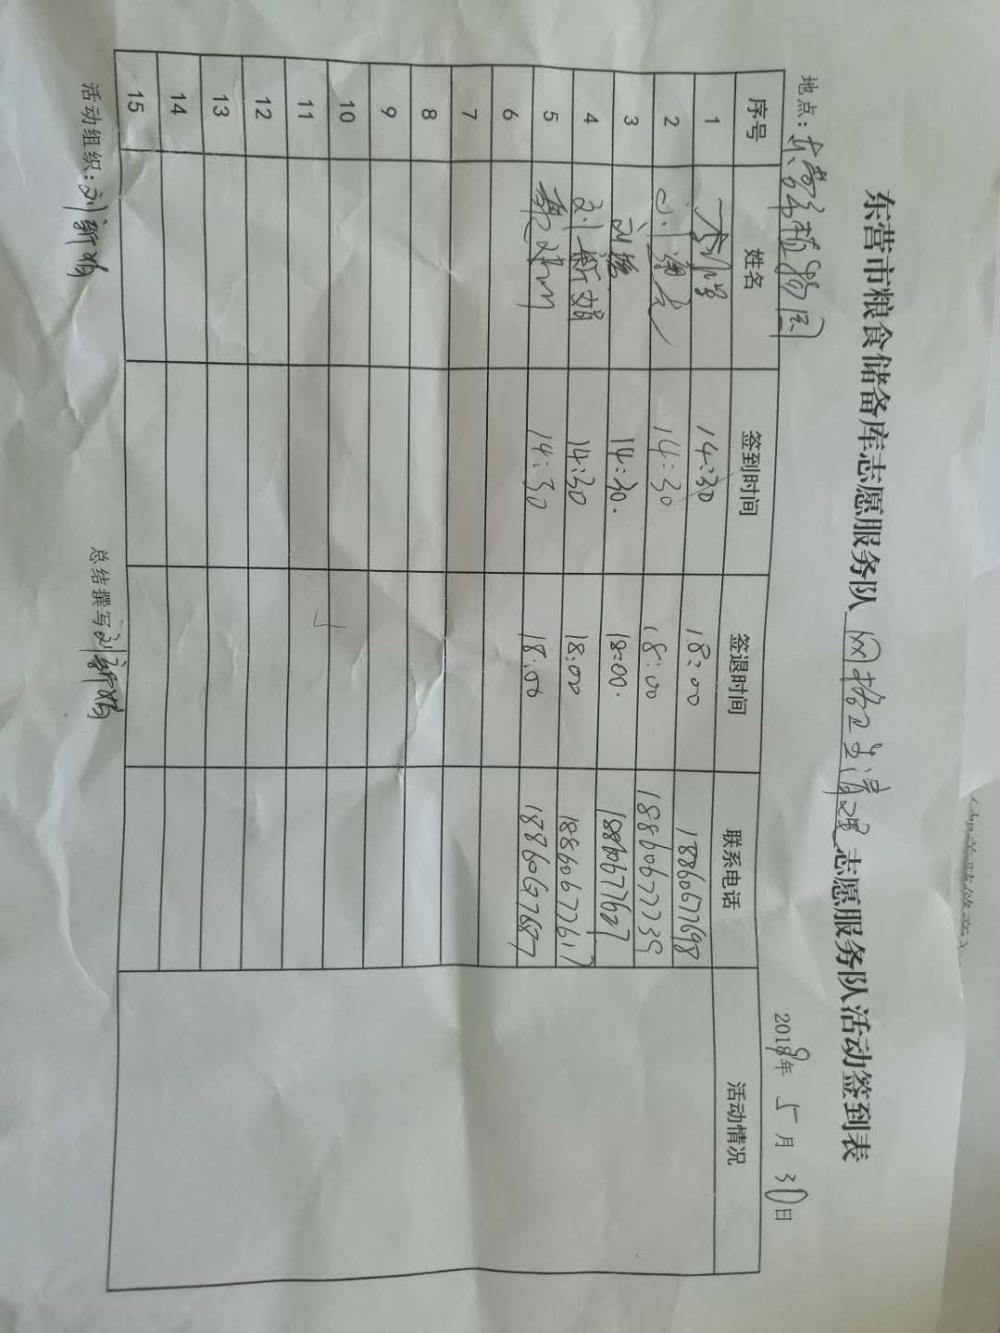 东营市粮食储备库志愿服务队 网格卫生清理 志愿服务队活动签到表
地点：东营市植物园 2019年 5月 30日
序号 姓名 签到时间 签退时间 联系电话 活动情况
1 14:30 18:00 18860677698
2 14:30 18:00 18860677739
3 14:30. 18:00. 18860677627
4 刘新娟 14:30 18:00 18860677617
5 14:30 18:00 18860677687
6
7
8
9
10
11
12
13
14
15
活动组织：刘新娟 总结撰写 刘新娟